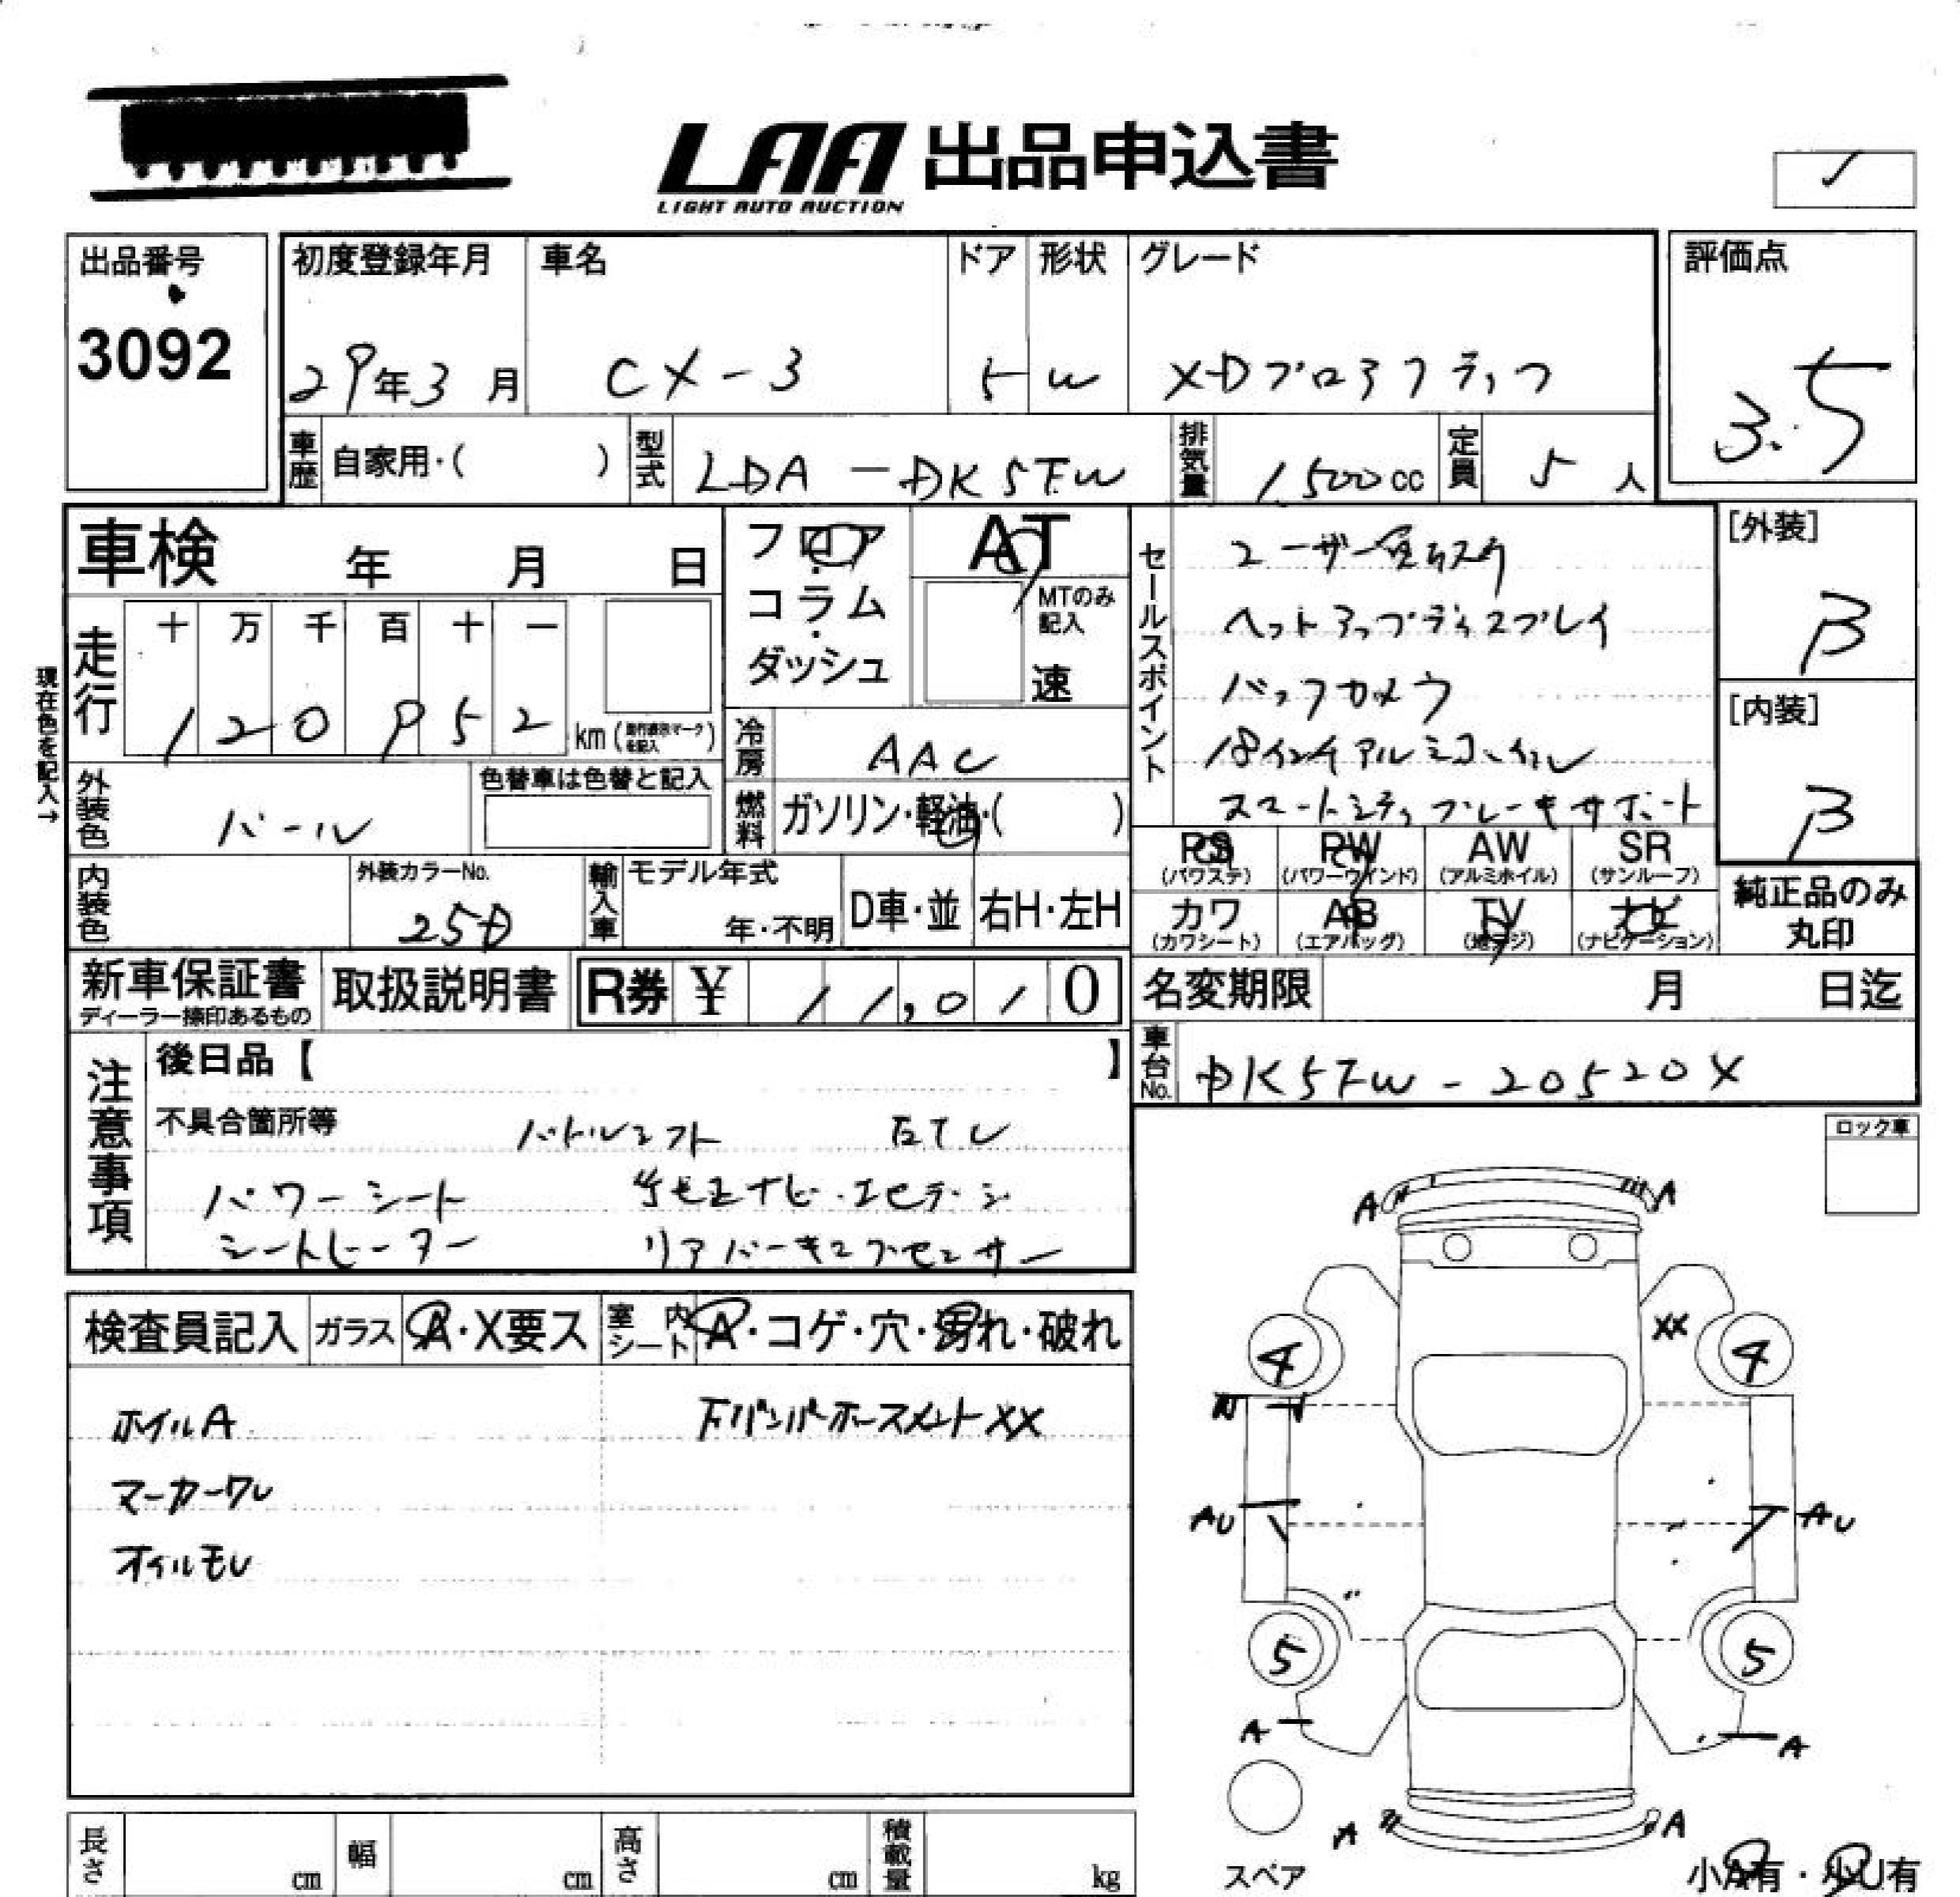 LAA 出品申込書
LIGHT AUTO AUCTION
出品番号
3092
初度登録年月
29年3月
車名
CX-3
ドア
5
形状
W
グレード
XDプロアクティブ
評価点
3.5
車歴
自家用・( )
型式
LDA-DK5FW
排気量
1,500cc
定員
5人
車検 年 月 日
フロア・コラム・ダッシュ
AT
MTのみ記入
速
セールスポイント
ユーザー買取
ヘットアップディスプレイ
バックカメラ
18インチアルミホイル
スマートシティブレーキサポート
[外装]
B
[内装]
B
現在色を記入→
走行
十 万 千 百 十 一
1 2 0 9 5 2 km
冷房
AAC
外装色
パール
色替車は色替と記入
燃料
ガソリン・軽油・( )
内装色
外装カラーNo.
25D
輸入車
モデル年式
年・不明
D車・並
右H・左H
PS
(パワステ)
PW
(パワーウインド)
AW
(アルミホイル)
SR
(サンルーフ)
カワ
(カワシート)
AB
(エアバッグ)
TV
(地デジ)
ナビ
(ナビゲーション)
純正品のみ
丸印
新車保証書
ディーラー捺印あるもの
取扱説明書
R券 ¥ 11,010
名変期限 月 日迄
車台No.
DK5FW-20520X
注意事項
後日品【 】
不具合箇所等
パドルシフト ETC
パワーシート 純正ナビ・フルセグ
シートヒーター リアパーキングセンサー
ロック車
検査員記入
ガラス
A・X要ス
室内シート
A・コゲ・穴・汚れ・破れ
ホイルA
Fバンパホースメント XX
マーカーワレ
オイルモレ
A A
XX
4 4
AU AU
5 5
A A
A A
スペア
小A有・小U有
長さ cm
幅 cm
高さ cm
積載量 kg